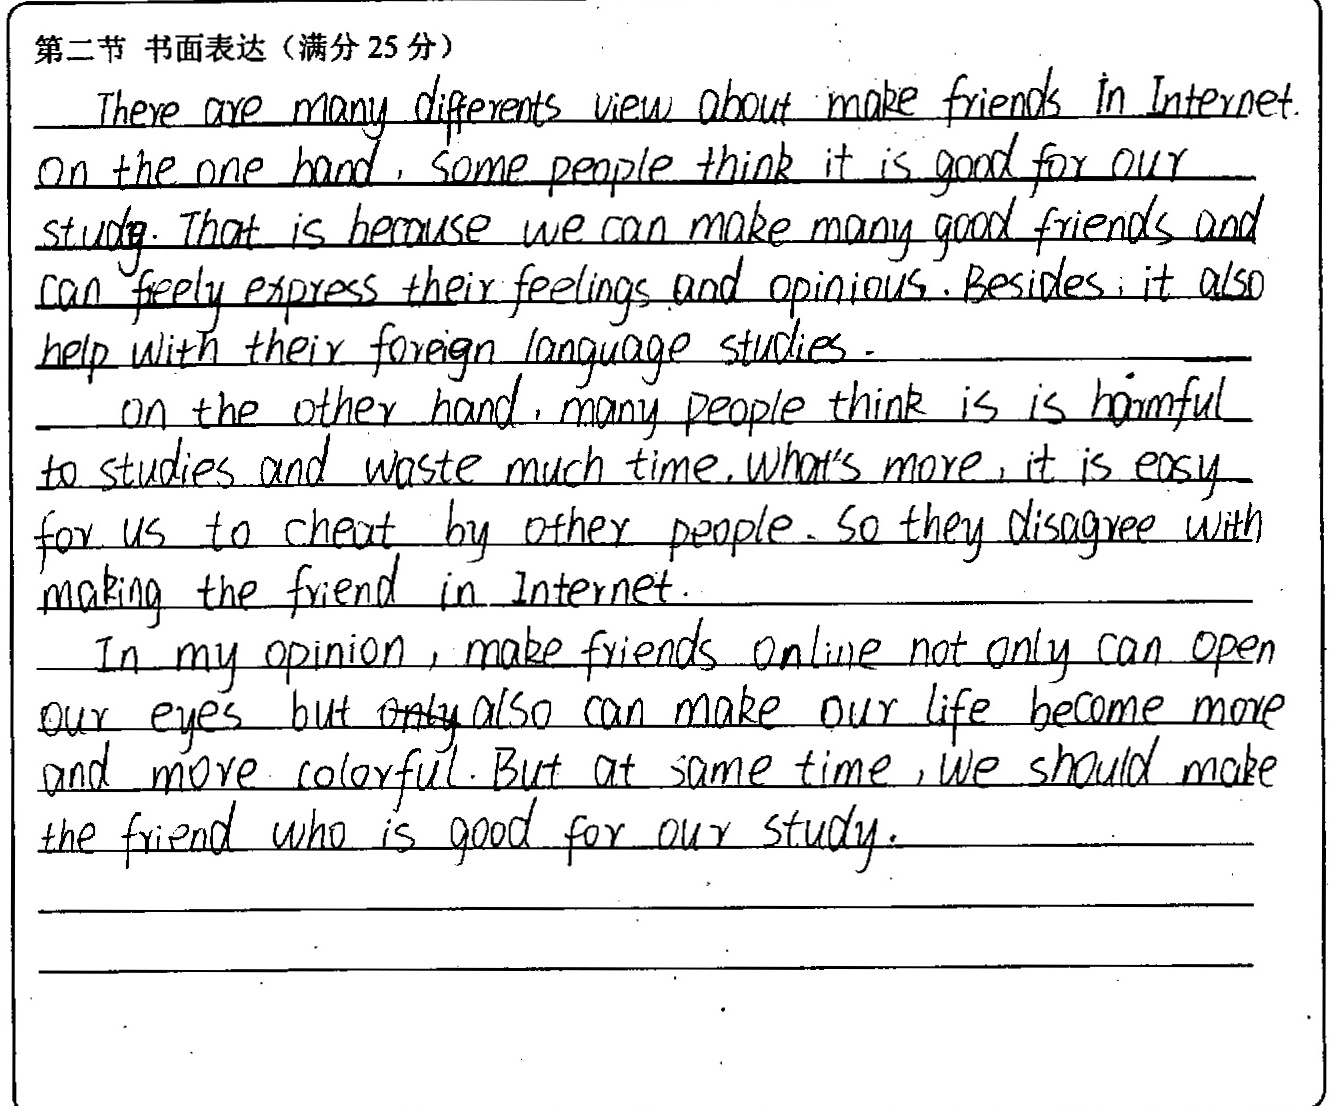 第二节 书面表达（满分 25 分）
There are many differents view about make friends in Internet.
on the one hand, some people think it is good for our
study. That is because we can make many good friends and
can freely express their feelings and opinious. Besides, it also
help with their foreign language studies.
on the other hand, many people think is is harmful
to studies and waste much time. What's more, it is easy
for us to cheat by other people. So they disagree with
making the friend in Internet.
In my opinion, make friends online not only can open
our eyes but only also can make our life become more
and more colorful. But at same time, we should make
the friend who is good for our study.